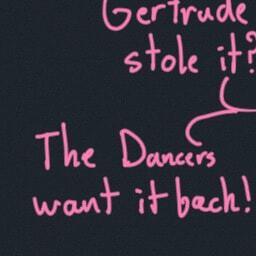 Gertrude
stole it?
The Dancers
want it back!